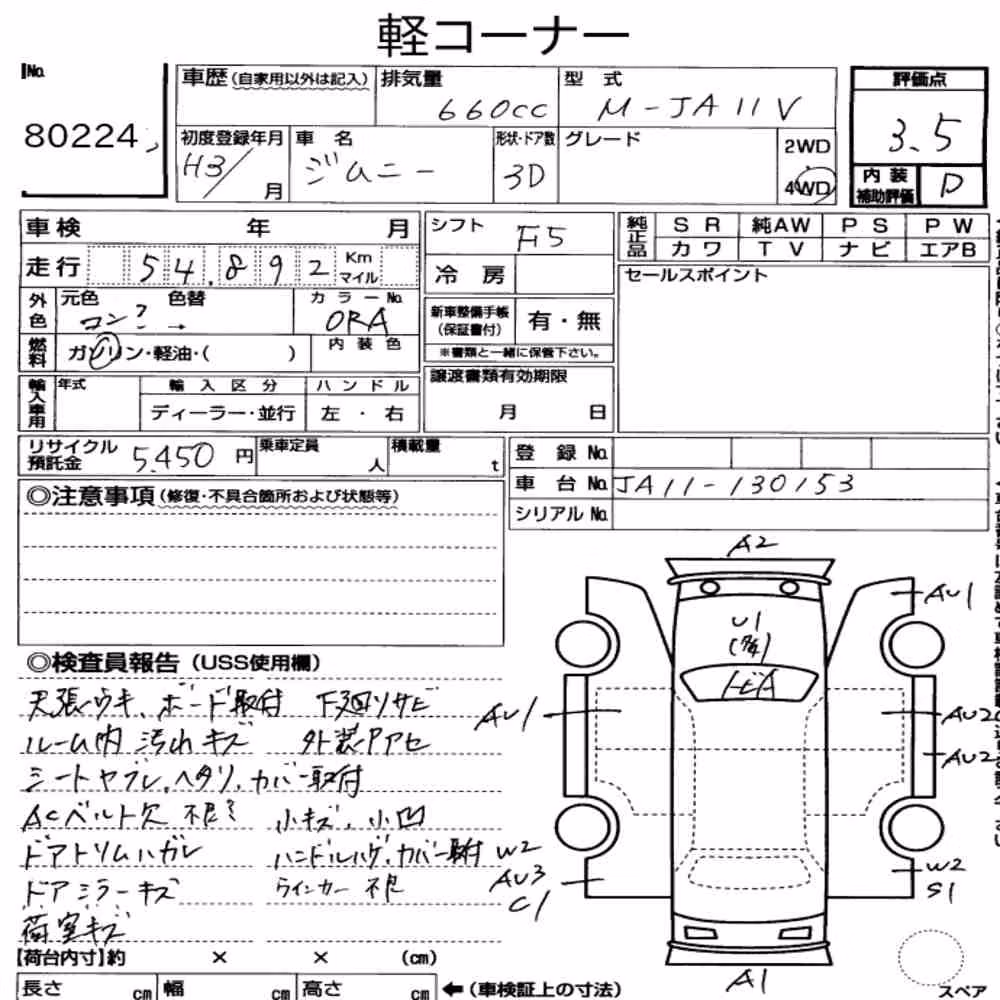 軽コーナー
No.
80224
車歴 (自家用以外は記入) 排気量 660cc 型式 M-JA11V
初度登録年月 H3/ 月 車名 ジムニー 形状・ドア数 3D グレード 2WD 4WD
評価点 3.5
内装補助評価 D
車検 年 月
走行 54,892 Km マイル
外色 元色 色替 カラーNo. ORA
コン? →
燃料 ガソリン・軽油・( ) 内装色
輸入車用 年式 輸入区分 ハンドル
ディーラー・並行 左・右
シフト F5
冷房
新車整備手帳 (保証書付) 有・無
※書類と一緒に保管下さい。
譲渡書類有効期限
月 日
純正品 SR 純AW PS PW
カワ TV ナビ エアB
セールスポイント
リサイクル預託金 5,450 円 乗車定員 人 積載量 t
登録No.
車台No. JA11-130153
シリアルNo.
◎注意事項 (修復・不具合箇所および状態等)
◎検査員報告 (USS使用欄)
天張ウキ、ボード取付 下廻りサビ
ルーム内 汚れ キズ 外装色アセ
シートヤブレ、ヘタリ、カバー取付
ACベルト欠 不良 小キズ、小凹
ドアトリムハガレ ハンドルハゲ、カバー取付
ドアミラーキズ ウインカー不良
荷室キズ
【荷台内寸】約 × × (cm)
長さ cm 幅 cm 高さ cm ←(車検証上の寸法)
A2
AU1
U1
トビA
AU1
AU2
AU2
W2
AU3
C1
W2
S1
A1
スペア